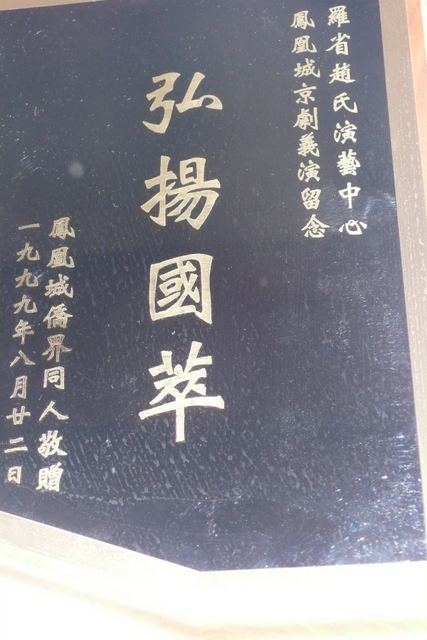 羅省趙氏演藝中心
鳳凰城京劇義演留念
弘揚國萃
鳳凰城僑界同人敬贈
一九九九年八月廿二日